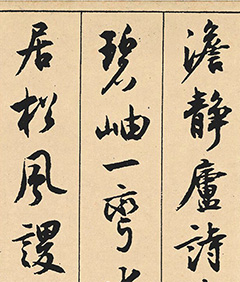 澹静廬詩
碧岫一彎
居松風謖